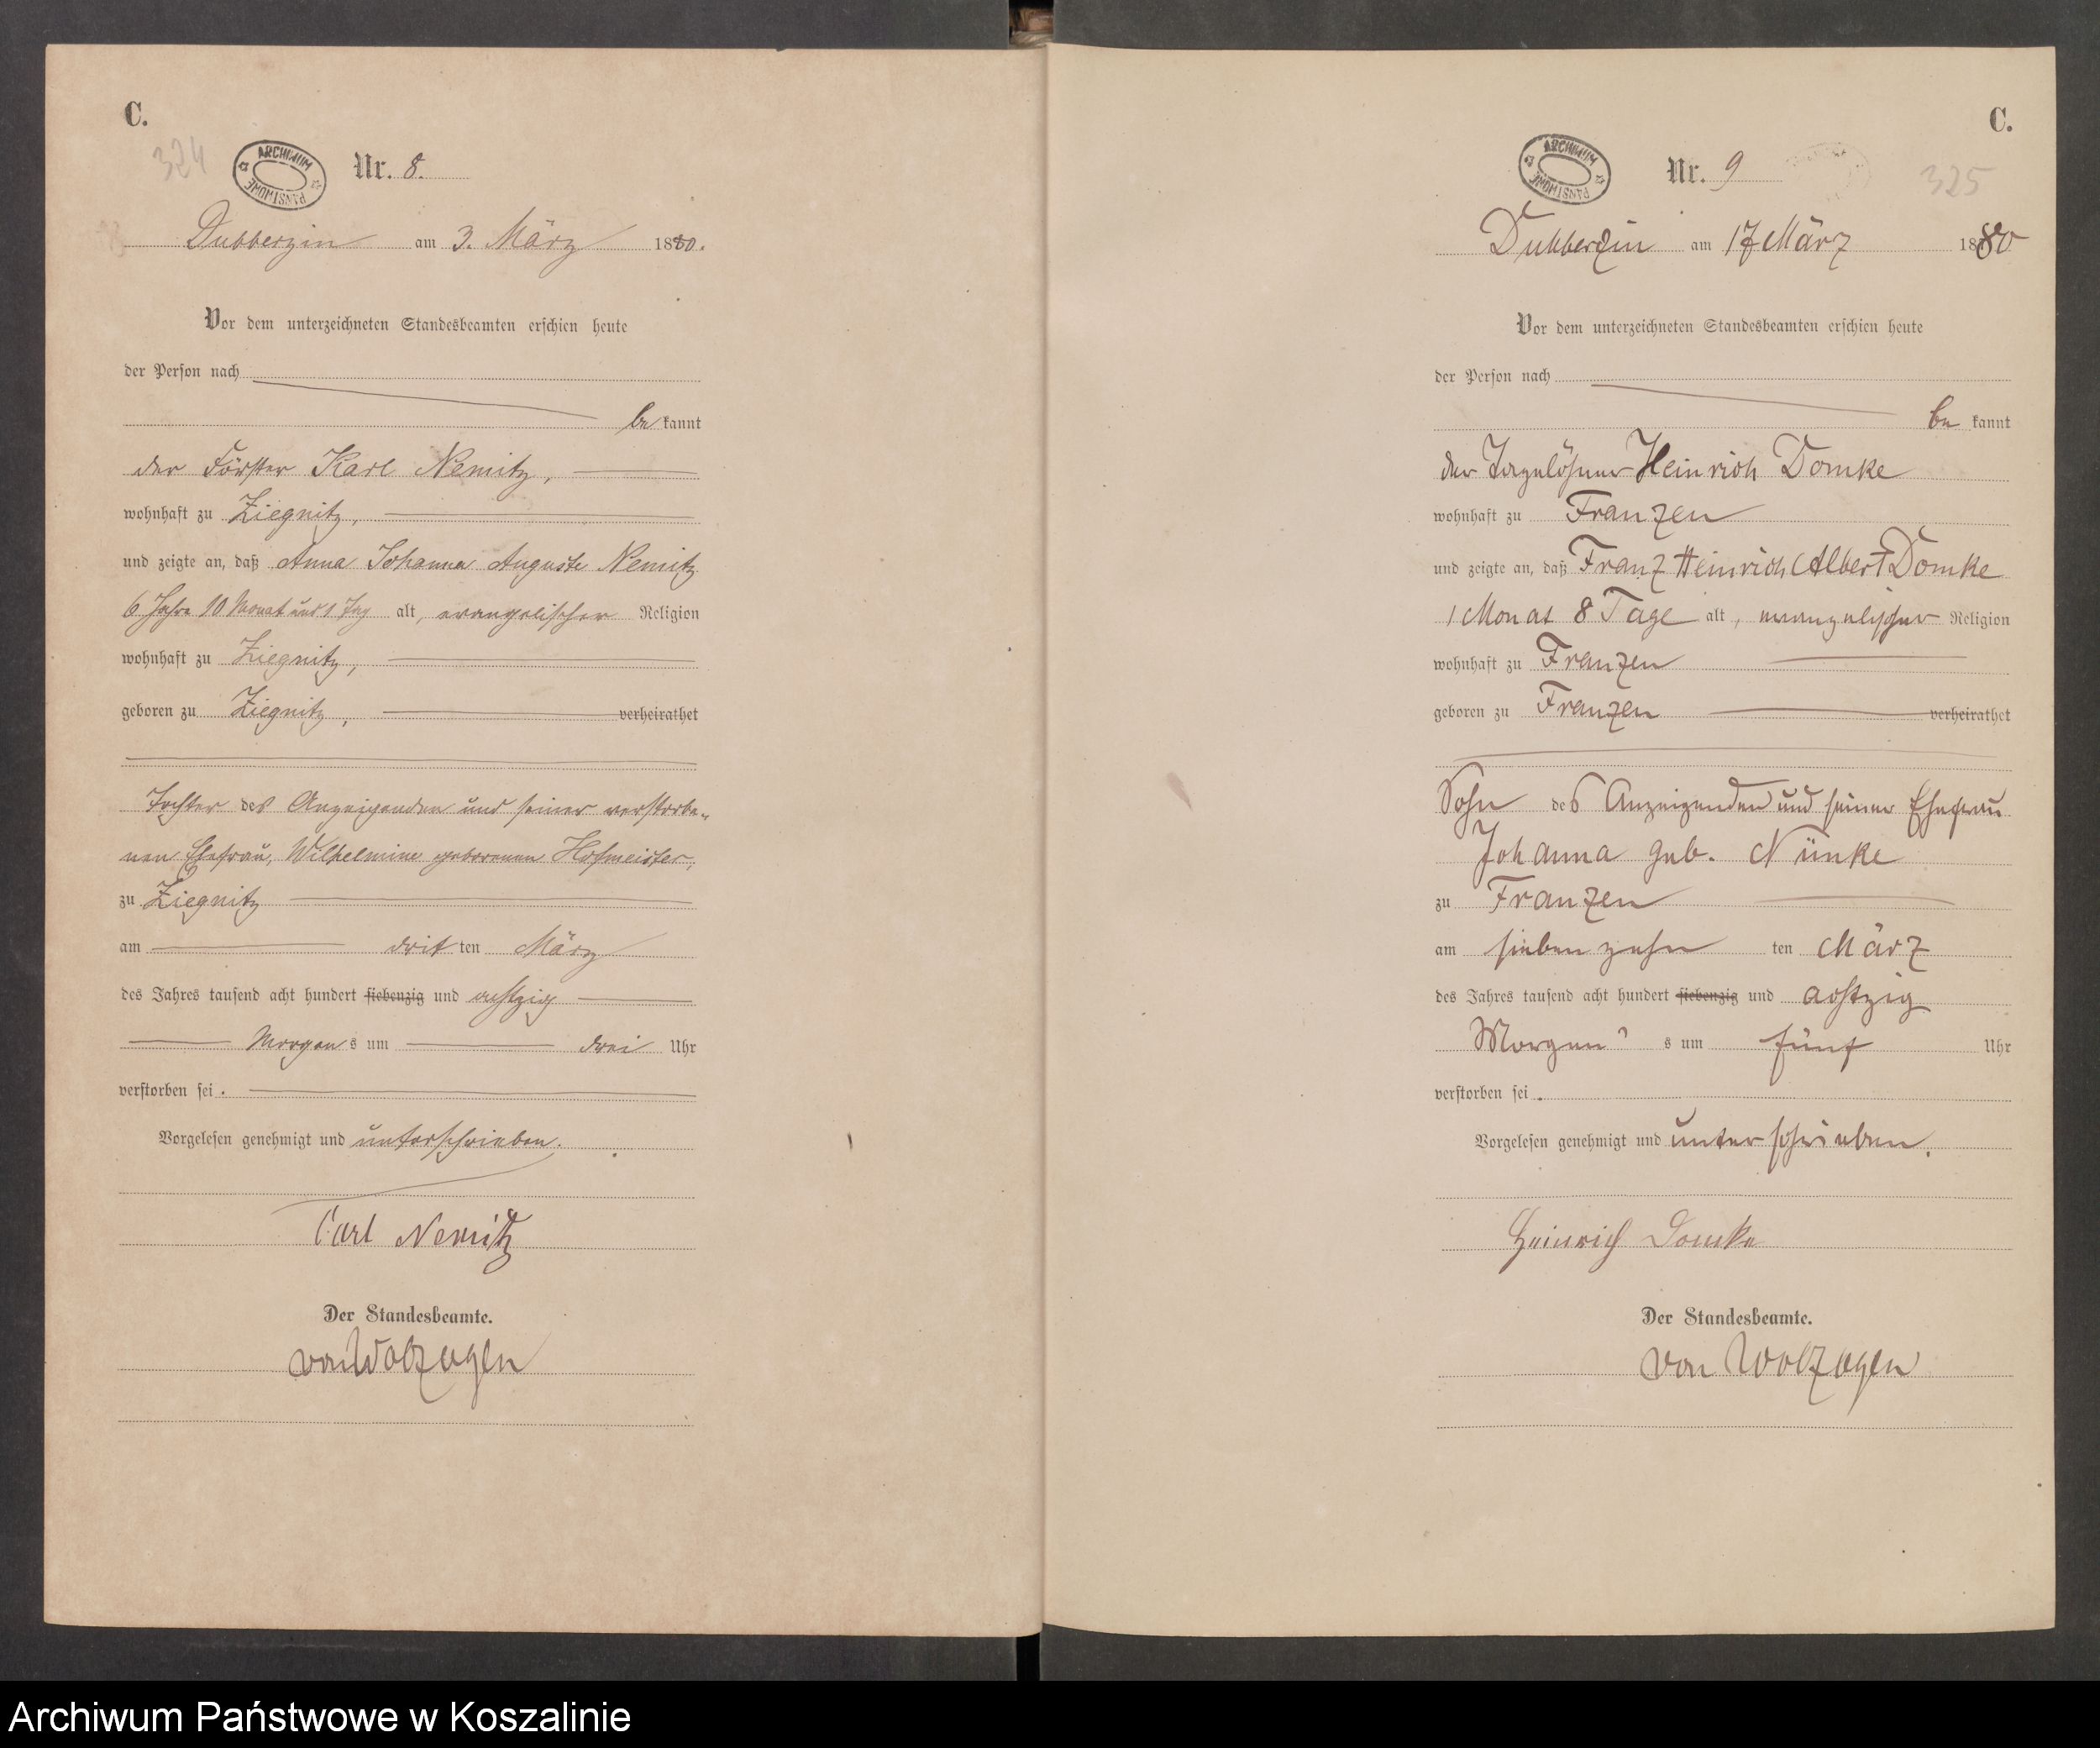 C.
324
ARCHIWUM PAŃSTWOWE
Nr. 8.
Dubberzin am 3. März 1880.
Vor dem unterzeichneten Standesbeamten erschien heute
der Person nach
be kannt
der Förster Karl Nemitz,
wohnhaft zu Ziegnitz,
und zeigte an, daß Anna Johanna Auguste Nemitz
6 Jahre 10 Monat und 1 Tag alt, evangelischer Religion
wohnhaft zu Ziegnitz,
geboren zu Ziegnitz, verheirathet
Tochter des Anzeigenden und seiner verstorbe-
nen Ehefrau, Wilhelmine geborenen Hofmeister,
zu Ziegnitz
am drit ten März
des Jahres tausend acht hundert siebenzig und achtzig
Morgen s um drei Uhr
verstorben sei.
Vorgelesen genehmigt und unterschrieben.
Carl Nemitz
Der Standesbeamte.
von Wolzogen
C.
325
ARCHIWUM PAŃSTWOWE
Nr. 9
Dubberzin am 17 März 1880
Vor dem unterzeichneten Standesbeamten erschien heute
der Person nach
be kannt
der Tagelöhner Heinrich Domke
wohnhaft zu Franzen
und zeigte an, daß Franz Heinrich Albert Domke
1 Monat 8 Tage alt, evangelischer Religion
wohnhaft zu Franzen
geboren zu Franzen verheirathet
Sohn des Anzeigenden und seiner Ehefrau
Johanna geb. Nünke
zu Franzen
am siebenzehn ten März
des Jahres tausend acht hundert siebenzig und achtzig
Morgen s um fünf Uhr
verstorben sei.
Vorgelesen genehmigt und unterschrieben.
Heinrich Domke
Der Standesbeamte.
von Wolzogen
Archiwum Państwowe w Koszalinie